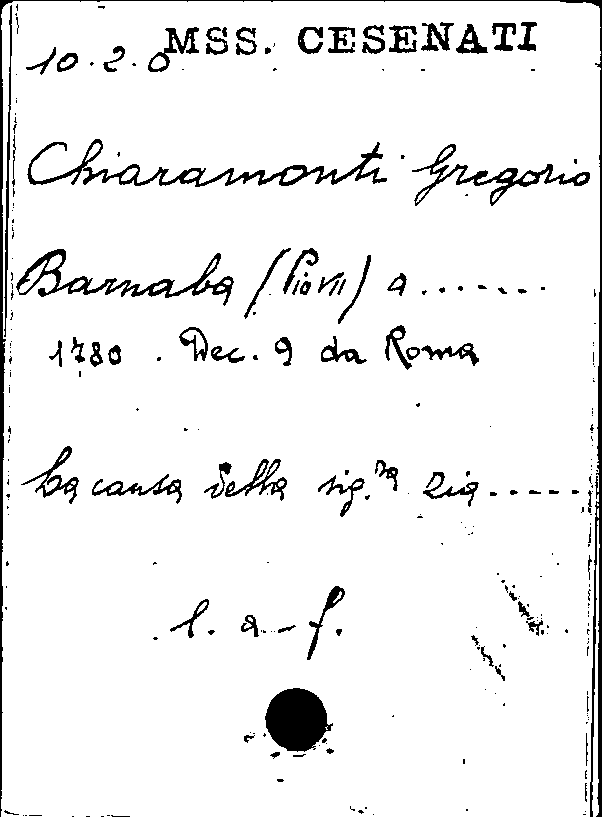 MSS. CESENATI
10.2.0
Chiaramonti Gregorio
Barnaba (Pio VII) a.......
1780. Dec. 9 da Roma
La causa della sig.ra Zia.....
l. a-f.